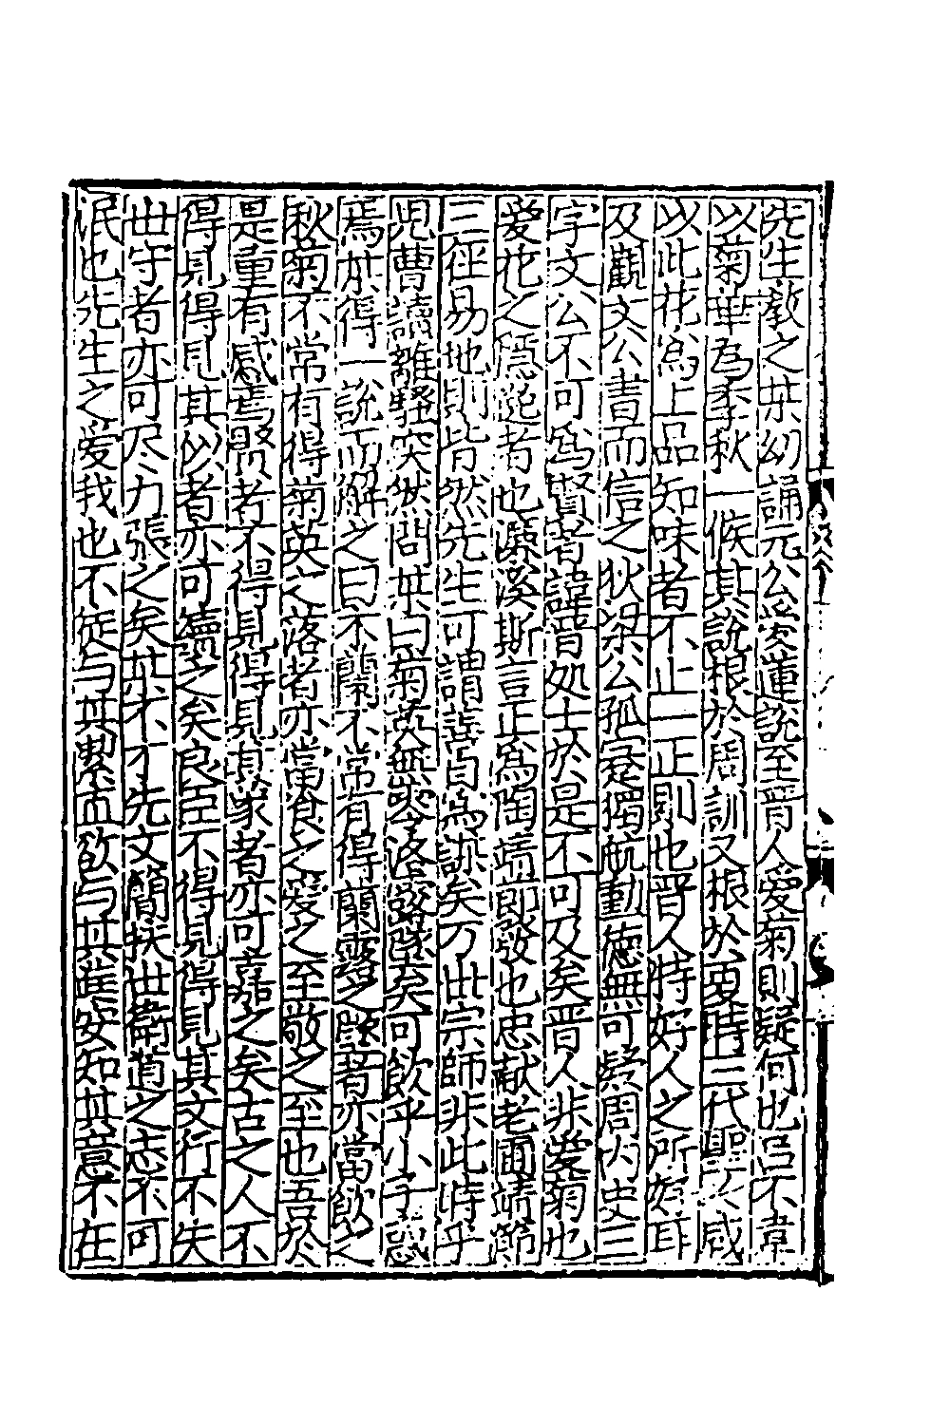 先生教之某幼誦元公愛蓮說至晉人愛菊則疑何也呂不韋
以菊華為季秋一候其說根於周訓又根於夏時三代聖人咸
以此花為上品知味者不止一正則也晉人特好人之所好耳
及觀文公書而信之狄梁公孤忠獨航動德無可疑周內史三
字文公不可為賢者諱晉処士於是不可及矣晉人非愛菊也
愛花之隱逸者也濂溪斯言正為陶靖節發也忠献老圃靖節
三徑易地則皆然先生可謂善自為謀矣万世宗師非此時乎
児曹讀離騷突然問某曰菊英無零落露墜矣可飲乎小子惑
焉某得一說而解之曰不蘭不常有得蘭露之墜者亦當飲之
秋菊不常有得菊英之落者亦當食之愛之至敬之至也吾於
是重有感焉賢者不得見得見其家者亦可喜之矣古之人不
得見得見其後者亦可續之矣良臣不得見得見其文行不失
世守者亦可尽力張之矣某不才先文簡扶世衛道之志不可
泯也先生之愛我也不徒与其絜而欲与其進安知其意不在